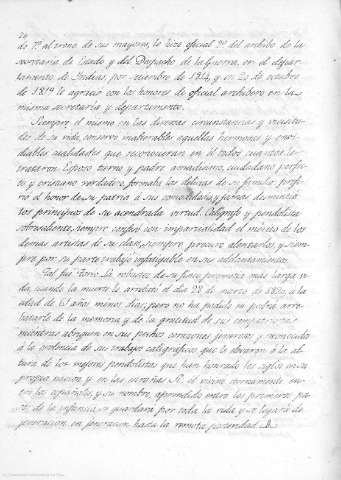 do 7º al trono de sus mayores, le hizo oficial 2º del archibo de la
secretaria de Estado y del Despacho de la Guerra, en el depar-
tamento de Indias, por diciembre de 1814, y en 20 de octubre
de 1819 le agració con los honores de oficial archibero en la
misma secretaría y departamento.
Siempre el mismo en las diversas circunstancias y vicisitu-
des de su vida, conservó inalterables aquellas hermosas y envi-
diables cualidades que reconocieran en él todos cuantos le
trataron. Esposo tierno y padre amantísimo, ciudadano perfec-
to y cristiano verdadero, formaba las delicias de su familia,
el honor de su patria á sus comodidades, y jamas desmintió
los principios de su acendrada virtud. Calígrafo y pendolista
sobresaliente, siempre confesó con imparcialidad el mérito de los
demas artistas de su clase, siempre procuró alentarlos, y siem-
pre por su parte trabajó infatigable en sus adelantamientos.
Tal fué Torio. La robustez de su fisico prometia mas larga vi-
da, cuando la muerte le arrebató el dia 28 de marzo de 1820, á la
edad de 61 años menos dias; pero no ha podido ni podrá arre-
batarle de la memoria y de la gratitud de sus compatriotas
mientras abriguen en sus pechos corazones generosos y reconocidos
á la escelencia de sus trabajos caligraficos que le elevaron á la al-
tura de los mejores pendolistas que han honrado los siglos en su
propia nacion y en las estrañas. Sí, él vivirá eternamente en-
tre los españoles, y su nombre, aprendido entre los primeros pa-
sos de la infancia, se guardará por toda la vida y se legará de
generacion en generacion hasta la remota posteridad.